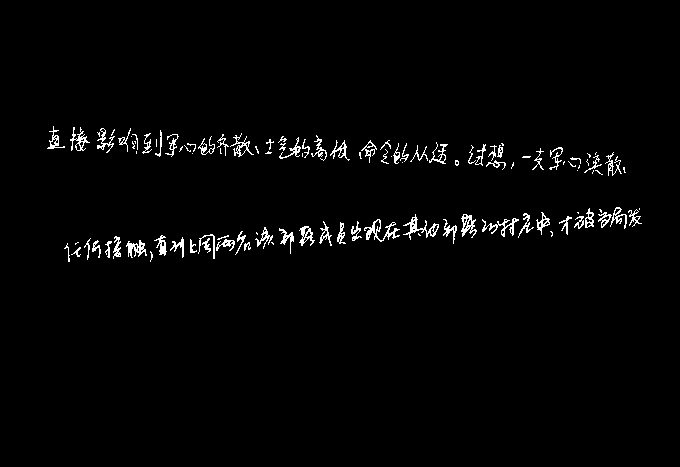 直接影响到军心的齐散、士气的高低命令的从违。试想，一支军心涣散、
任何接触，直到上周两名该部路成员出现在其他部路的村庄中，才被当局发